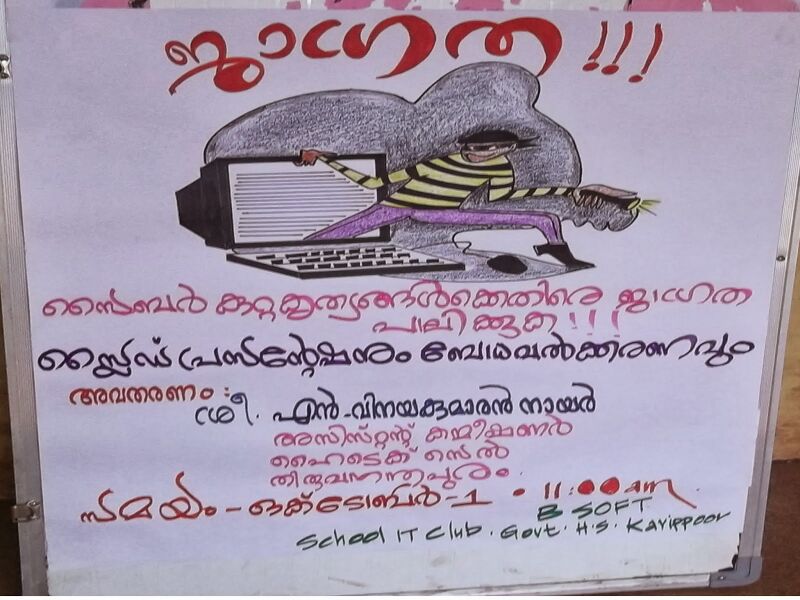 ജാഗ്രത !!!
സൈബർ കുറ്റകൃത്യങ്ങൾക്കെതിരെ ജാഗ്രത
പാലിക്കുക !!!
സ്ലൈഡ് പ്രസന്റേഷനും ബോധവൽക്കരണവും
അവതരണം :
ശ്രീ. എൻ-വിനയകുമാരൻ നായർ
അസിസ്റ്റന്റ് കമ്മീഷണർ
ഹൈടെക് സെൽ
തിരുവനന്തപുരം.
സമയം - ഒക്ടോബർ-1 . 11:00 am.
B SOFT
School IT Club. Govt. H.S. Karippoor